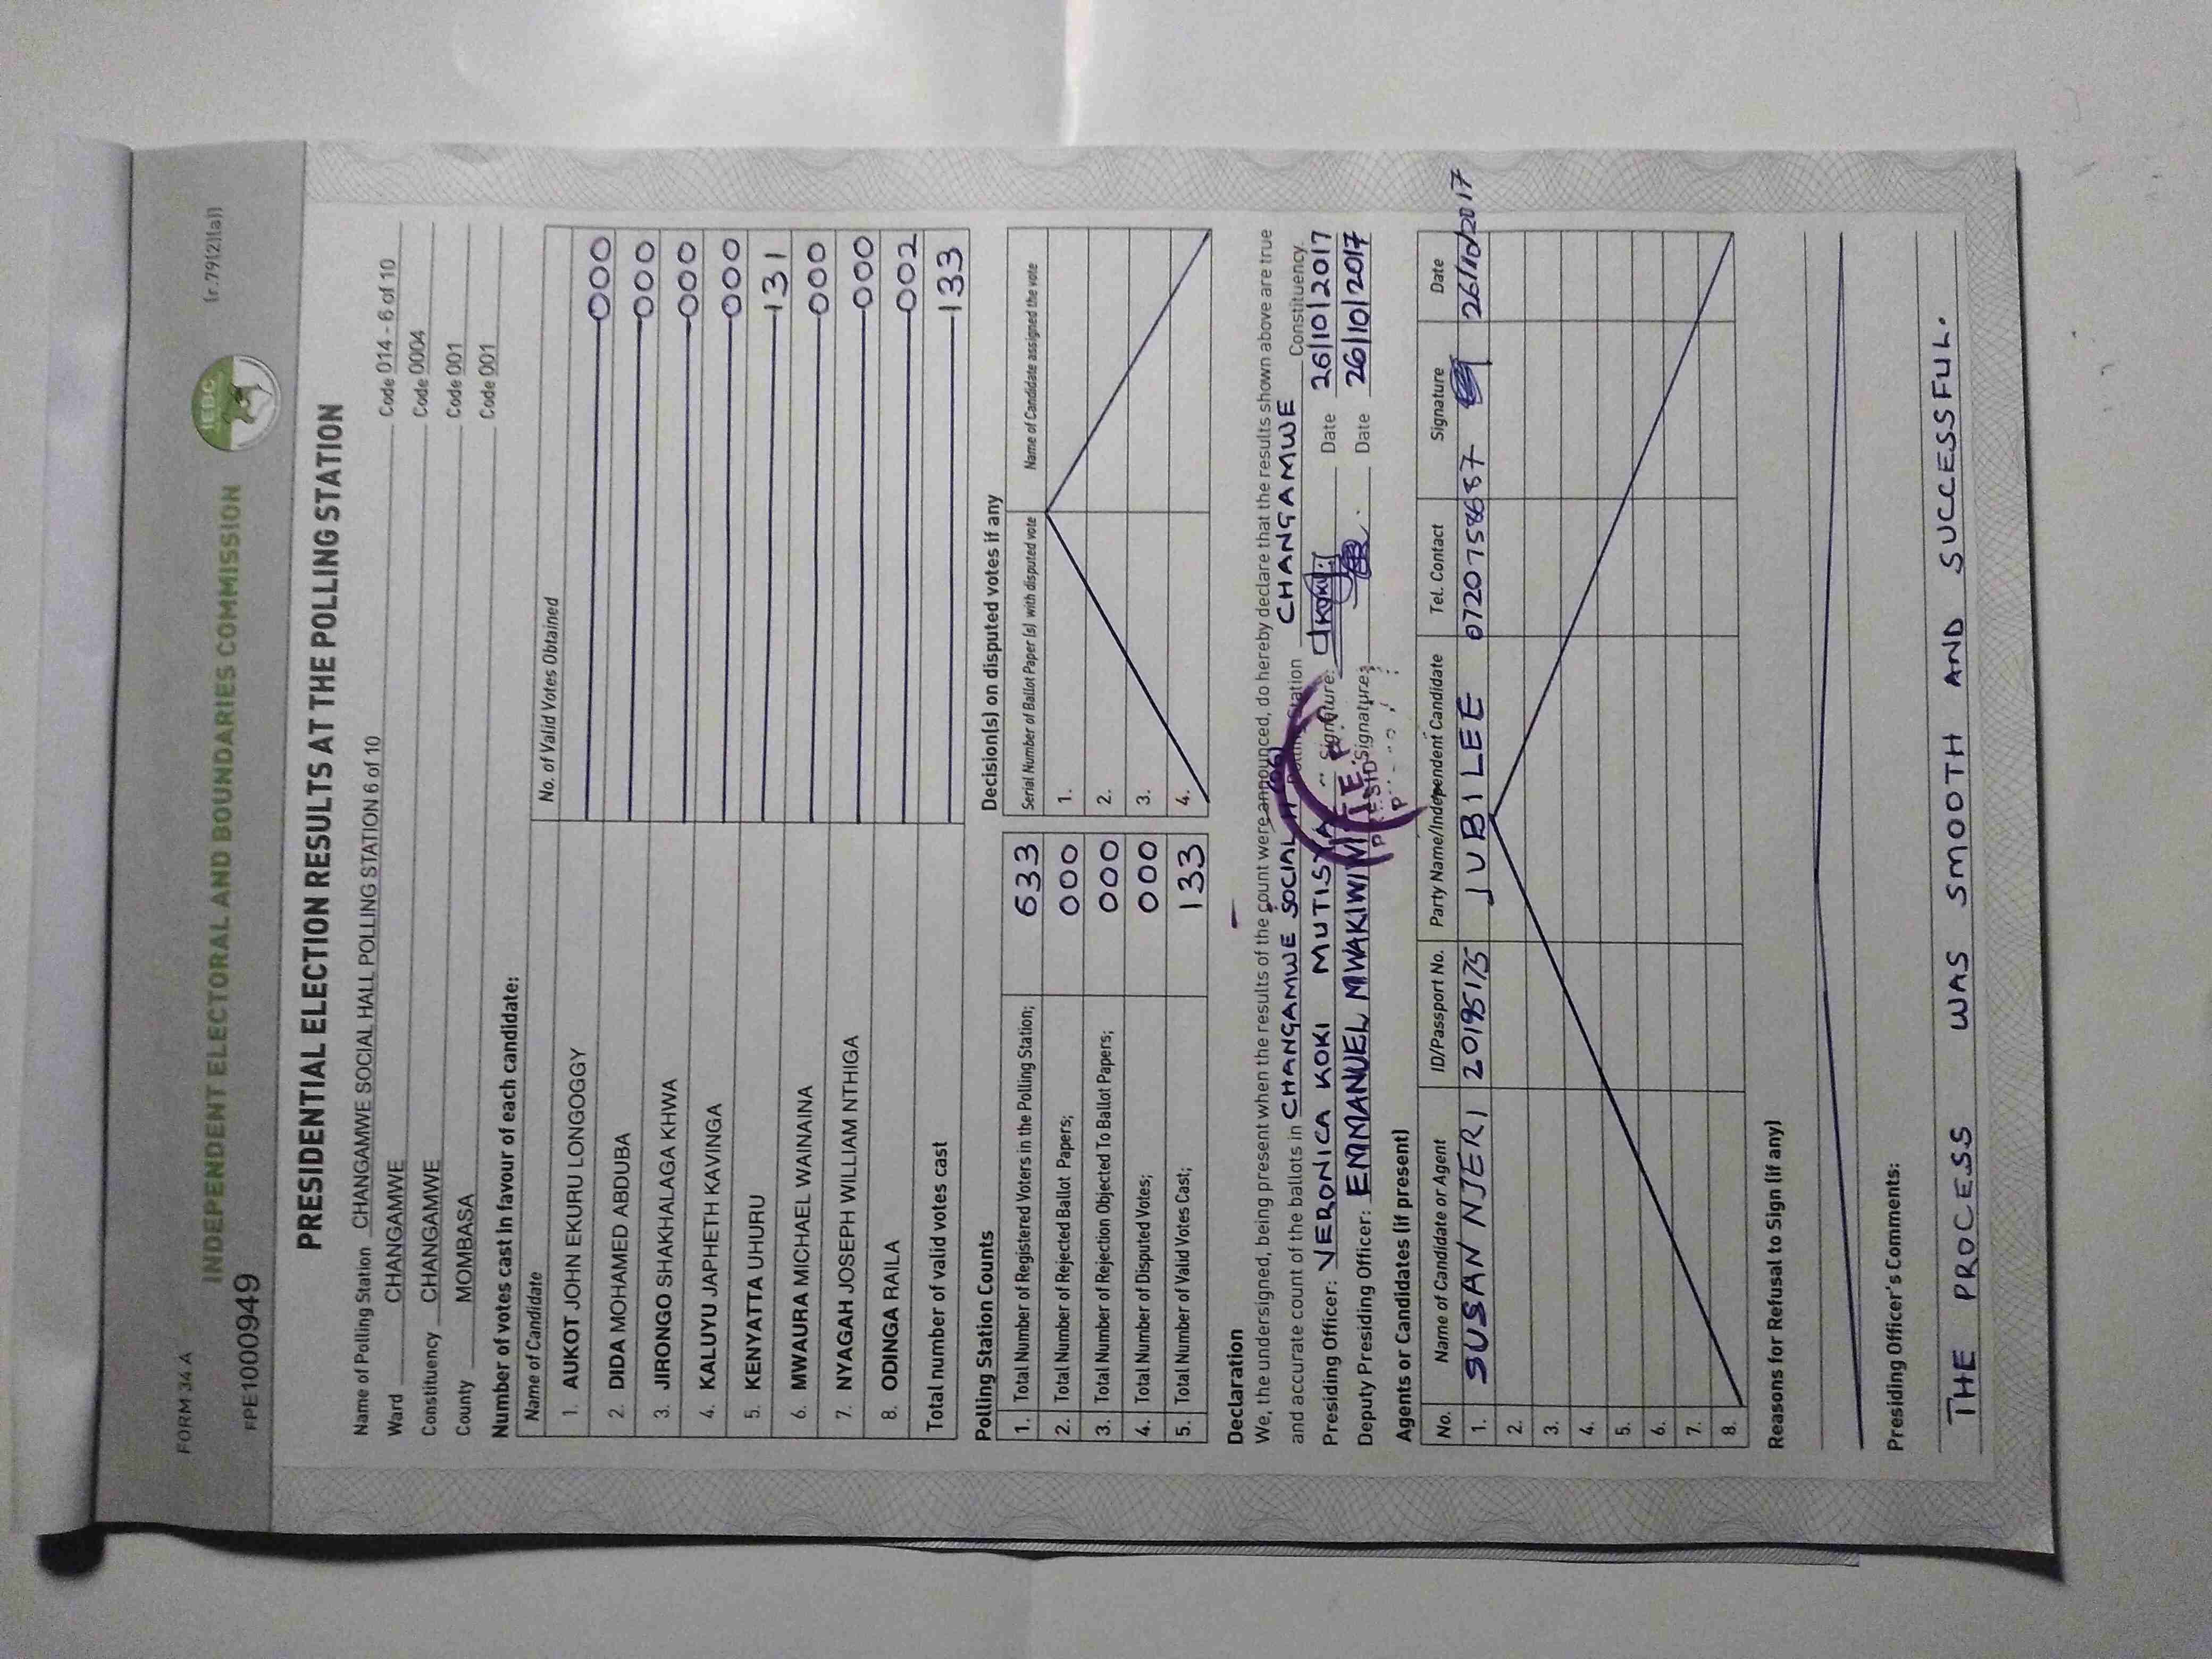 FORM 34 A
(r.79(2)(a))
INDEPENDENT ELECTORAL AND BOUNDARIES COMMISSION
IEBC
FPE1000949
PRESIDENTIAL ELECTION RESULTS AT THE POLLING STATION
Name of Polling Station CHANGAMWE SOCIAL HALL POLLING STATION 6 of 10 Code 014 - 6 of 10
Ward CHANGAMWE Code 0004
Constituency CHANGAMWE Code 001
County MOMBASA Code 001
Number of votes cast in favour of each candidate:
Name of Candidate No. of Valid Votes Obtained
1. AUKOT JOHN EKURU LONGOGGY 000
2. DIDA MOHAMED ABDUBA 000
3. JIRONGO SHAKHALAGA KHWA 000
4. KALUYU JAPHETH KAVINGA 000
5. KENYATTA UHURU 131
6. MWAURA MICHAEL WAINAINA 000
7. NYAGAH JOSEPH WILLIAM NTHIGA 000
8. ODINGA RAILA 002
Total number of valid votes cast 133
Polling Station Counts
1. Total Number of Registered Voters in the Polling Station; 633
2. Total Number of Rejected Ballot Papers; 000
3. Total Number of Rejection Objected To Ballot Papers; 000
4. Total Number of Disputed Votes; 000
5. Total Number of Valid Votes Cast; 133
Decision(s) on disputed votes if any
Serial Number of Ballot Paper (s) with disputed vote Name of Candidate assigned the vote
1.
2.
3.
4.
Declaration
We, the undersigned, being present when the results of the count were announced, do hereby declare that the results shown above are true
and accurate count of the ballots in CHANGAMWE SOCIAL Polling Station CHANGAMWE Constituency.
Presiding Officer: VERONICA KOKI MUTISYA Signature: Date 26/10/2017
Deputy Presiding Officer: EMMANUEL MWAKIWIWI Signature: Date 26/10/2017
Agents or Candidates (if present)
No. Name of Candidate or Agent ID/Passport No. Party Name/Independent Candidate Tel. Contact Signature Date
1. SUSAN NJERI 20195175 JUBILEE 26/10/2017
2.
3.
4.
5.
6.
7.
8.
Reasons for Refusal to Sign (if any)
Presiding Officer's Comments:
THE PROCESS WAS SMOOTH AND SUCCESSFUL.